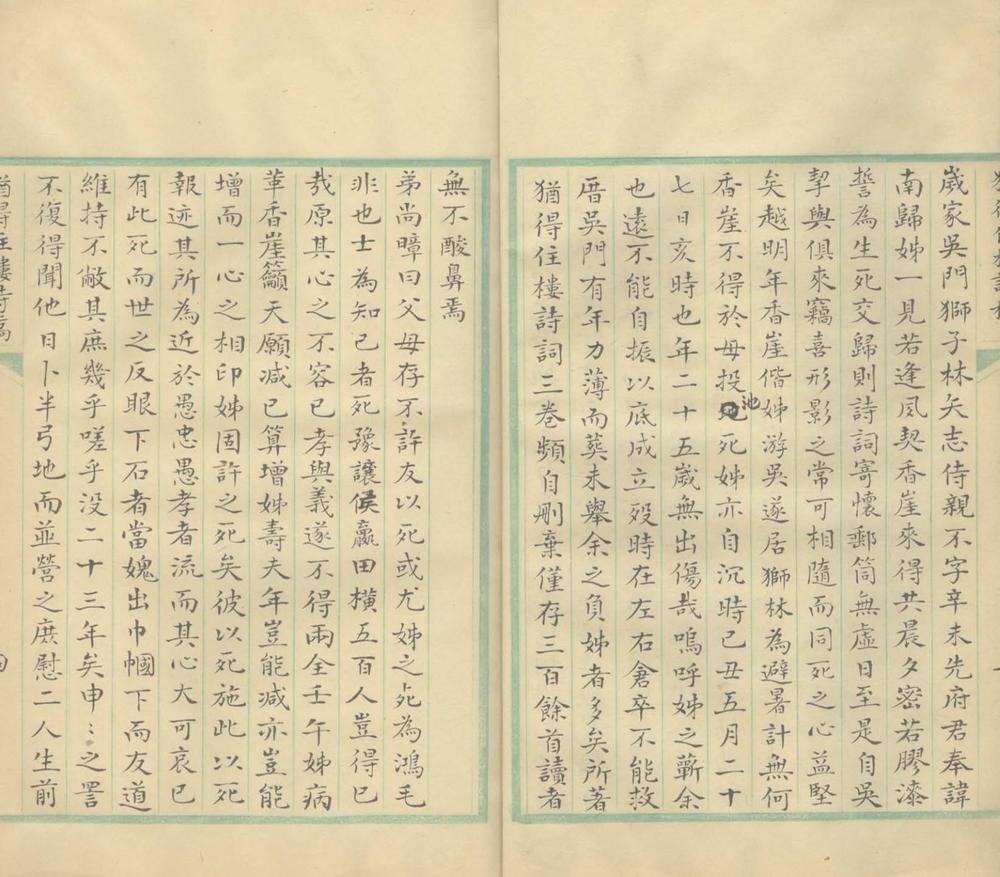 歲家吳門獅子林矢志侍親不字辛未先府君奉諱
南歸姊一見若逢夙契香崖來得共晨夕密若膠漆
誓為生死交歸則詩詞寄懷郵筒無虛日至是自吳
挈與俱來竊喜形影之常可相隨而同死之心益堅
矣越明年香崖偕姊游吳遂居獅林為避暑計無何
香崖不得於母投池死姊亦自沉時己丑五月二十
七日亥時也年二十五歲無出傷哉嗚呼姊之蘄余
也遠不能自振以底成立歿時在左右倉卒不能救
厝吳門有年力薄而葬未舉余之負姊者多矣所著
猶得住樓詩詞三卷頻自刪棄僅存三百餘首讀者
無不酸鼻焉
弟尚暲曰父母存不許友以死或尤姊之死為鴻毛
非也士為知已者死豫讓侯嬴田橫五百人豈得已
哉原其心之不容已孝與義遂不得兩全壬午姊病
革香崖籲天願減已算增姊壽夫年豈能減亦豈能
增而一心之相印姊固許之死矣彼以死施此以死
報迹其所為近於愚忠愚孝者流而其心大可哀已
有此死而世之反眼下石者當媿出巾幗下而友道
維持不敝其庶幾乎嗟乎没二十三年矣申〻之詈
不復得聞他日卜半弓地而並營之庶慰二人生前
猶得住樓詩稿